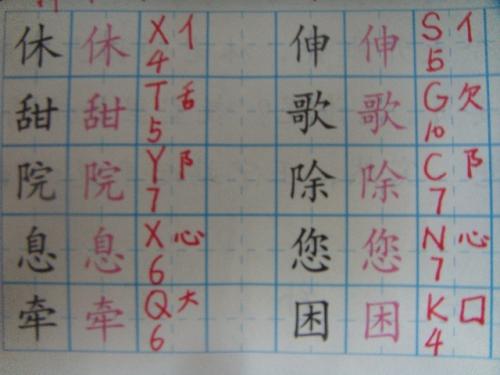 休 休 X 亻 4 伸 伸 S 亻 5
甜 甜 T 舌 5 歌 歌 G 欠 10
院 院 Y 阝 7 除 除 C 阝 7
息 息 X 心 6 您 您 N 心 7
牵 牵 Q 大 6 困 困 K 囗 4